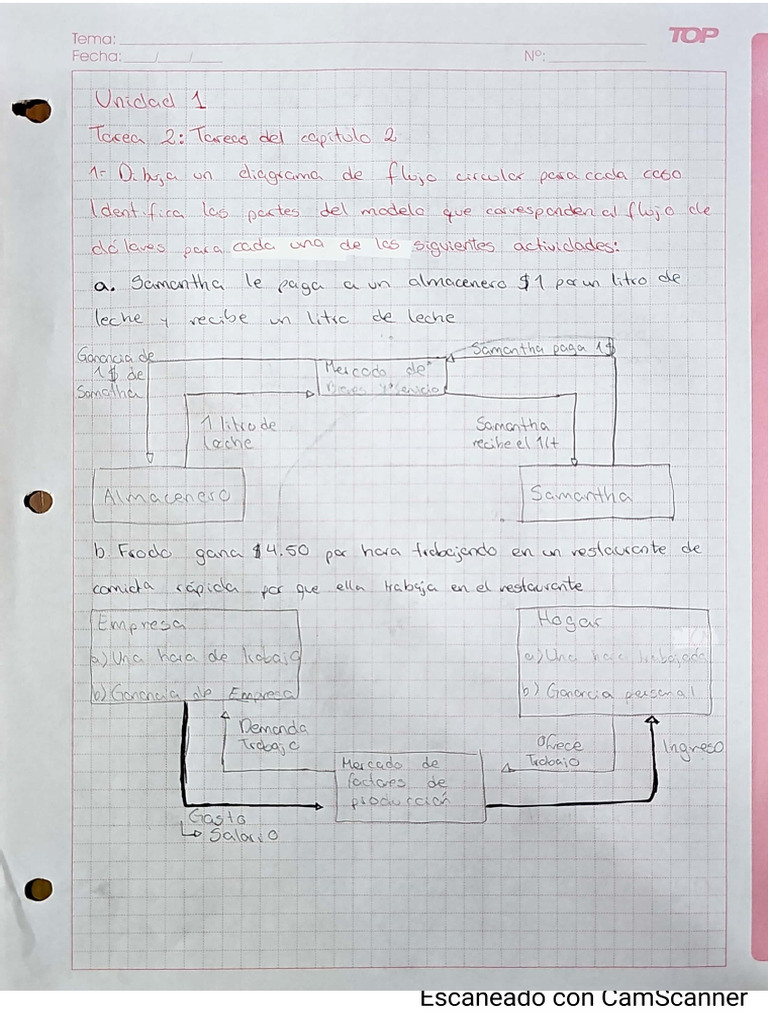 Tema:
TOP
Fecha: / /
Nº:
Unidad 1
Tarea 2: Tareas del capítulo 2
1- Dibuja un diagrama de flujo circular para cada caso
Identifica las partes del modelo que corresponden al flujo de
dólares para cada una de las siguientes actividades:
a. Samantha le paga a un almacenero $1 por un litro de
leche y recibe un litro de leche
Ganancia de
1$ de
Samatha
Mercado de
Bienes y Servicio
Samantha paga 1$
1 litro de
Leche
Samantha
recibe el 1lt
Almacenero
Samantha
b. Frodo gana $4.50 por hora trabajando en un restaurante de
comida rápida por que ella trabaja en el restaurante
Empresa
a) Una hora de trabajo
b) Ganancia de Empresa
Hogar
a) Una hora trabajada
b) Ganancia personal
Demanda
Trabajo
Mercado de
factores de
producción
Ofrece
Trabajo
Ingreso
Gasto
↳ Salario
Escaneado con CamScanner